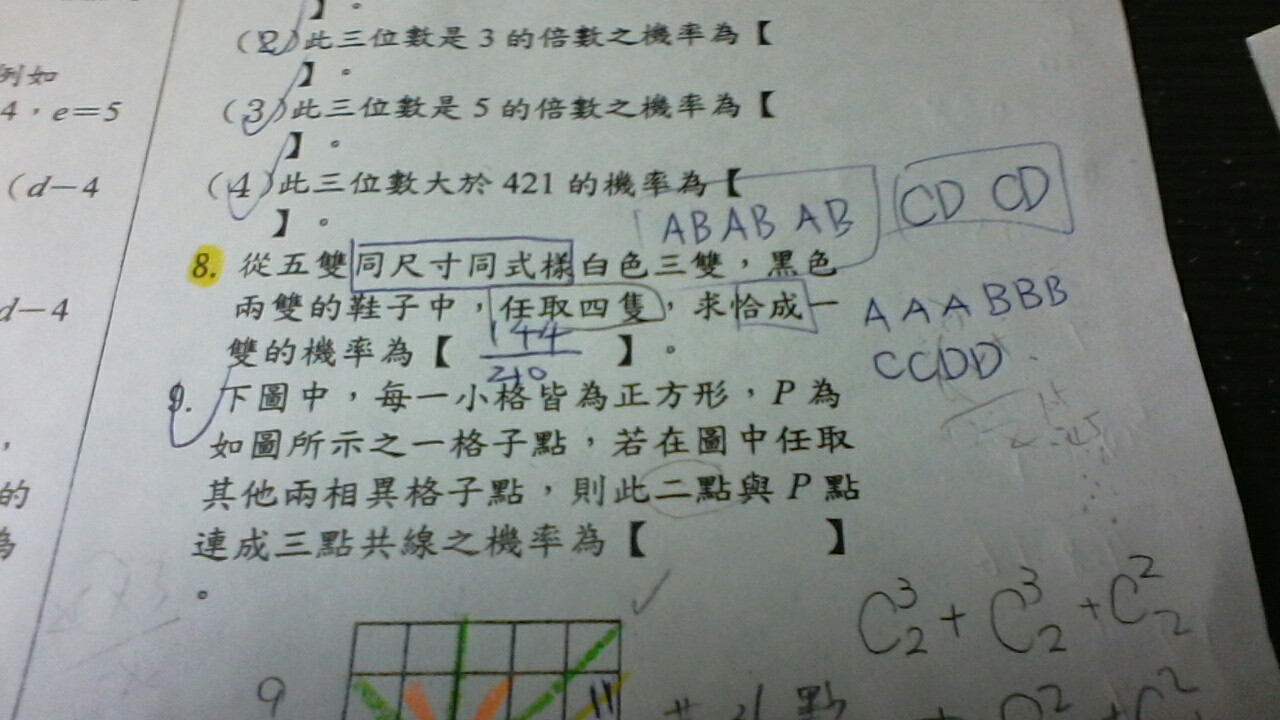 】。
(2)此三位數是 3 的倍數之機率為【
】。
例如
(3)此三位數是 5 的倍數之機率為【
4,e=5
】。
(4)此三位數大於 421 的機率為【
(d-4
】。
AB AB AB
CD CD
8. 從五雙同尺寸同式樣白色三雙,黑色
兩雙的鞋子中,任取四隻,求恰成一
雙的機率為【 144/210 】。
A A A B B B
C C D D
d-4
9. 下圖中,每一小格皆為正方形,P 為
如圖所示之一格子點,若在圖中任取
其他兩相異格子點,則此二點與 P 點
連成三點共線之機率為【 】
。
的
為
C³₂ + C³₂ + C²₂
9
11